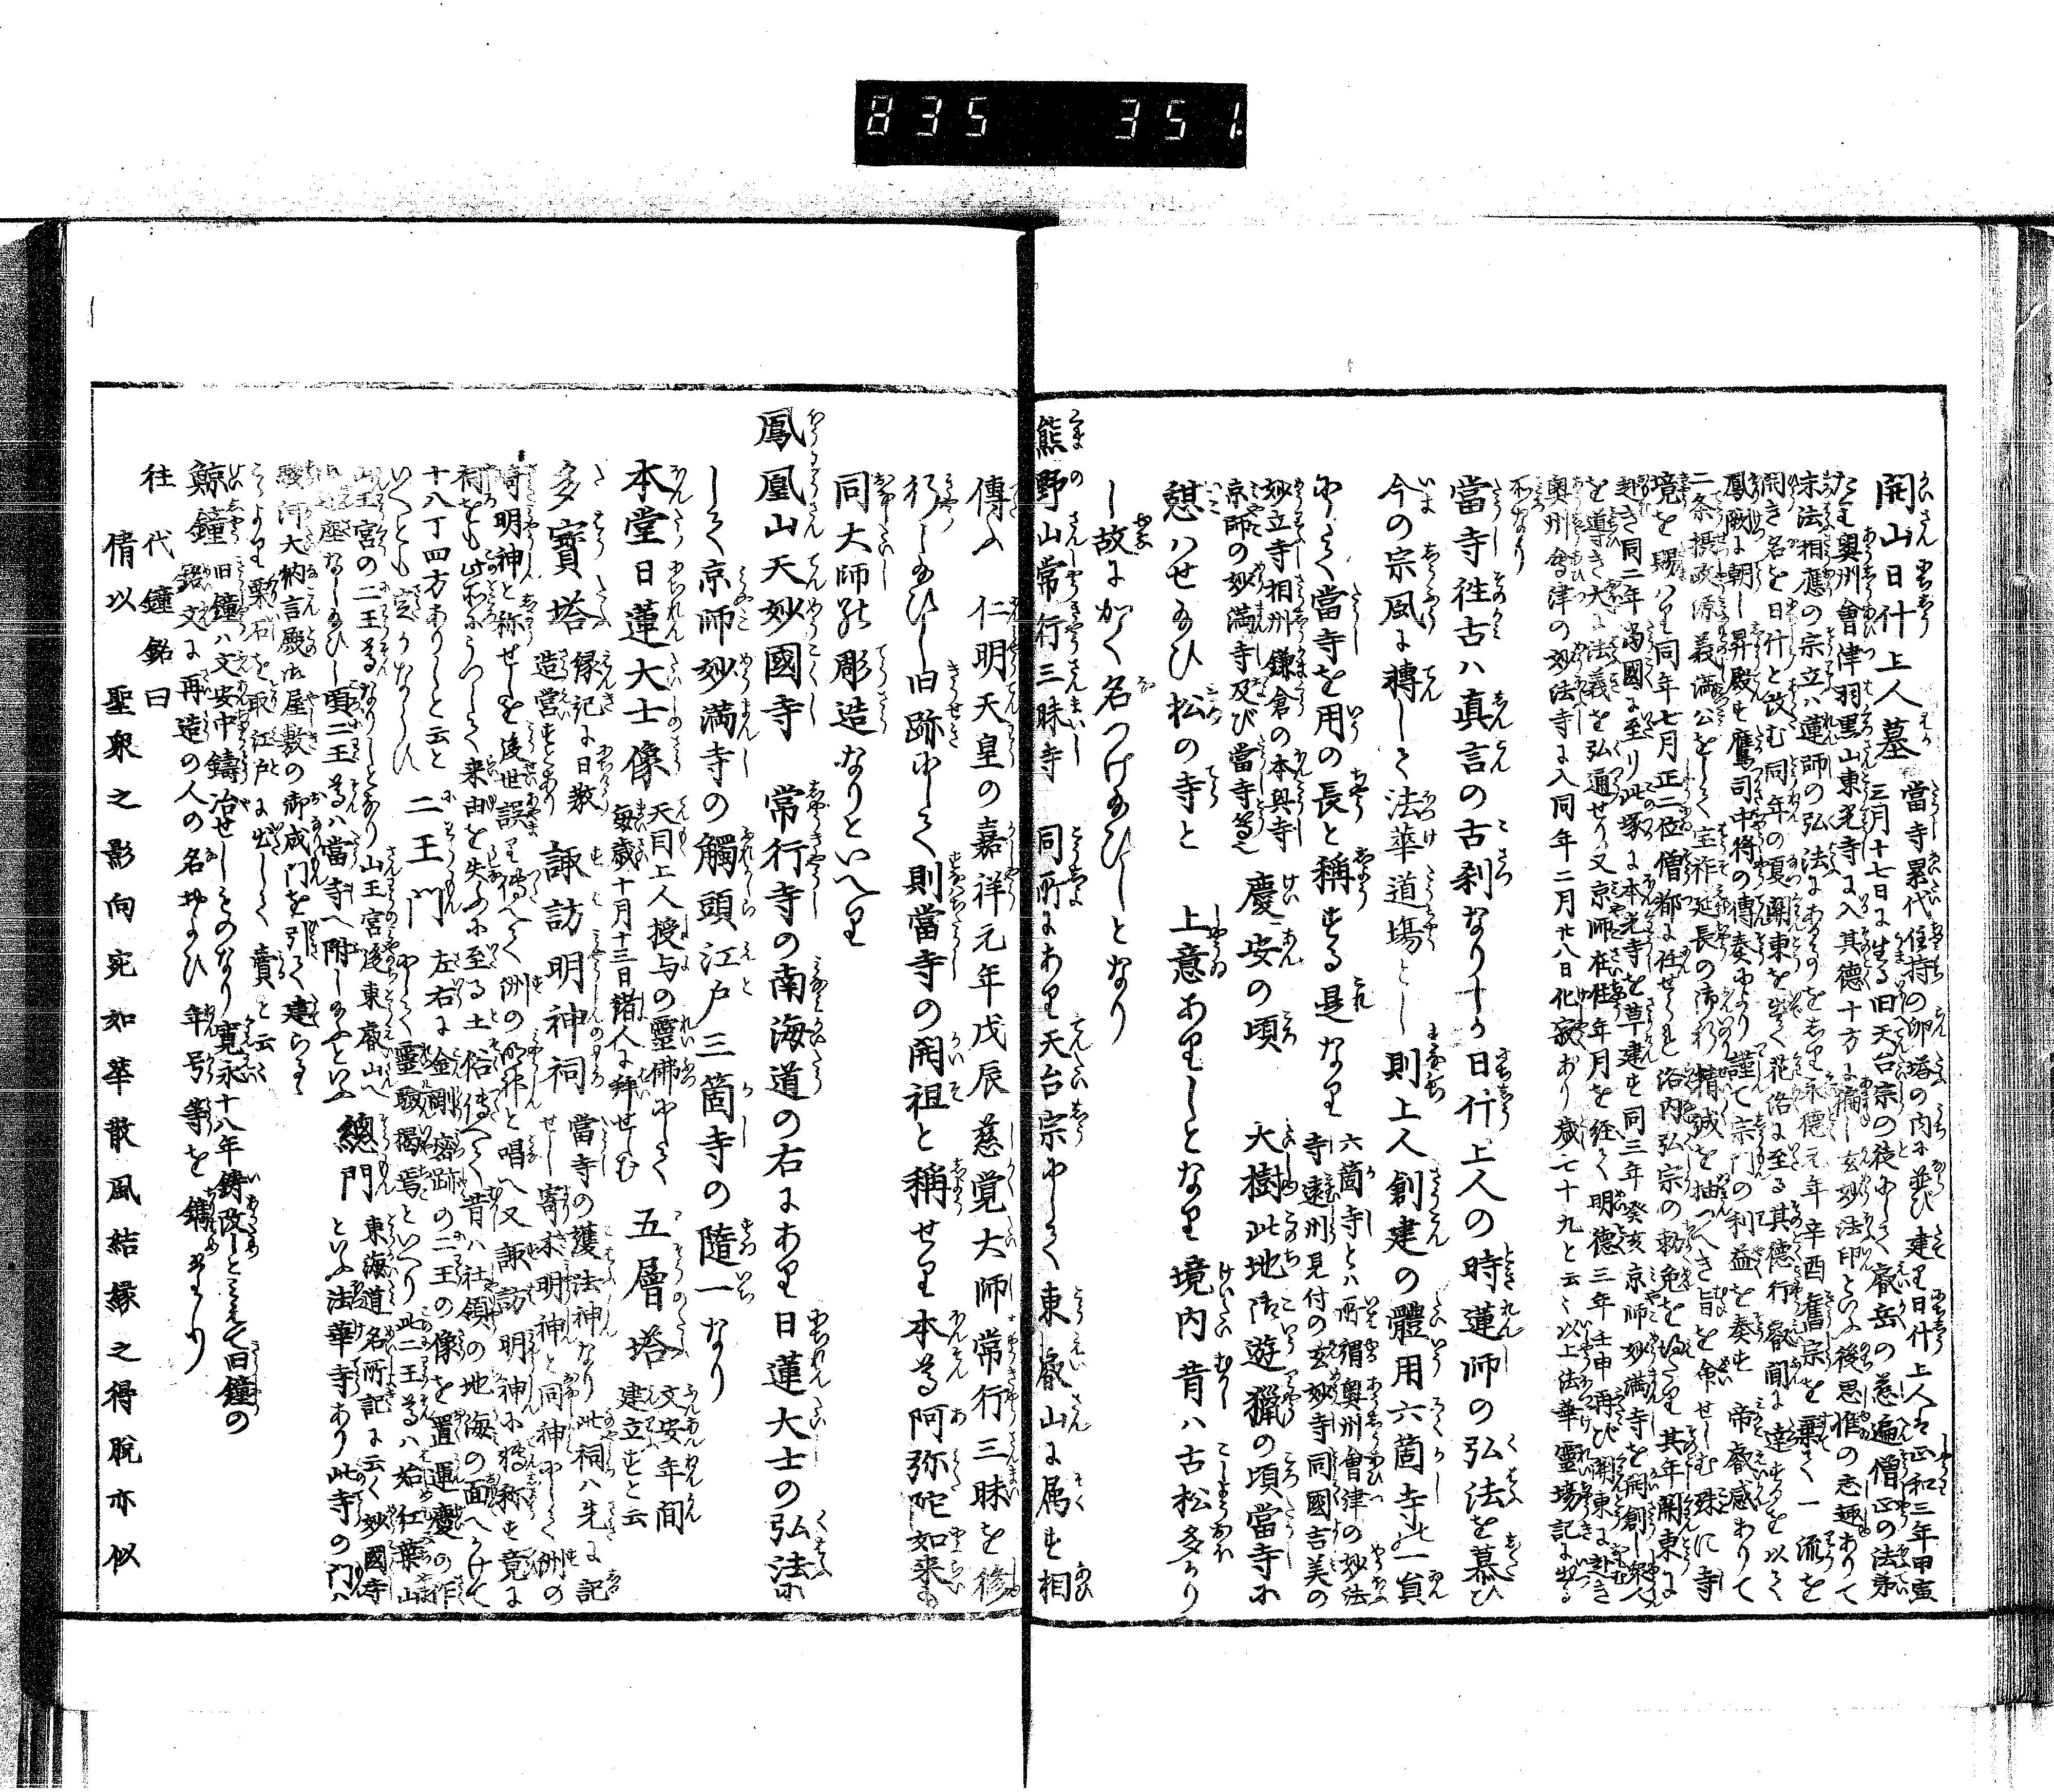 835 351
開山日什上人墓
當寺累代住持の卵塔の内に並び建り日什上人は正和三年甲寅
三月十七日に生る旧天台宗の徒にして叡岳の慈遍僧正の法弟
たり奥州會津羽黒山東光寺に入其徳十方に徧し玄妙法印といふ後思惟の志趣ありて
末法相應の宗立ハ蓮師の弘法にあるのミを志り永徳元年辛酉舊宗を棄て一流を
開き名を日什と改む同年の夏関東を出て花洛に至る其徳行叡聞に達するを以て
鳳闕に朝し昇殿も鷹司中将の傳奏により謹て宗門の利益を奏も帝叡感ありて
二条摂政源義満公をして宝祚延長の御祈精誠を抽つへき旨を命せしむ殊に寺
境を賜ハり同年七月正二位僧都に任せられ洛内弘宗の勅免を蒙り其年関東に
赴き同二年当國に至り此塚に本光寺を草建も同三年癸亥京師妙満寺を開創し衆人
を導き大に法義を弘通せり又京師在住年月を経て明徳三年壬申再び関東に赴き
奥州會津の妙法寺に入同年二月廿八日化寂あり歳七十九と云々以上法華霊場記に出る
不なり
當寺往古ハ真言の古刹なりしか日什上人の時蓮師の弘法を慕ひ
今の宗風に轉して法華道場とし則上人創建の體用六箇寺の一員
にして當寺を用の長と稱する是なり
六箇寺とハ所謂奥州會津の妙法
寺遠州見付の玄妙寺同國吉美の
妙立寺相州鎌倉の本興寺
京師の妙満寺及び當寺等也
慶安の頃 大樹此地御遊猟の頃當寺に
憇ハせ給ひ松の寺と 上意ありしとなり境内昔ハ古松多かり
し故にかく名つけ給ひしとなり
熊野山常行三昧寺 同所にあり天台宗にして東叡山に属す相
傳ふ 仁明天皇の嘉祥元年戊辰慈覚大師常行三昧を修
行し給ひし旧跡にして則當寺の開祖と稱せり本尊阿弥陀如来も
同大師の彫造なりといへり
鳳凰山天妙國寺 常行寺の南海道の右にあり日蓮大士の弘法に
して京師妙満寺の觸頭江戸三箇寺の隨一なり
本堂日蓮大士像
天目上人授与の靈佛にして
毎歳十月十三日諸人に拜せしむ
五層塔
文安年間
建立すと云
多寳塔
縁記に日数
造営すとあり
諏訪明神祠
當寺の護法神なり此祠ハ先に記
せし寄木明神と同神にして洲の
崎明神と称せしを後世誤り傳へて洲の明神と唱へ又諏訪明神に轉称も竟に
祠をも此所にうつして来由を失ふに至る土俗傳へて昔ハ社領の地海の面へかけて
十八丁四方ありしと云と
いへとも定かならひ
二王門
左右に金剛密跡の二王の像を置運慶の作
にして靈驗揭焉といへり此二王尊ハ始紅葉山
山王宮の二王尊なりしとなり山王宮後東叡山へ
遷座なし給ひし頃二王尊ハ當寺へ附し給ふといふ
總門
東海道名所記に云く妙國寺
といふ法華寺あり此寺の門ハ
駿河大納言殿御屋敷の御成門を引て建らる
そうより栗石を取江戸に出して賣と云云
鯨鐘
旧鐘ハ文安中鋳冶せしものなり寛永十八年鋳改しとミえて旧鐘の
銘文に再造の人の名および年号等を鐫たり
往代鐘銘曰
倩以 聖衆之影向宛如華散風結縁之得脱亦似